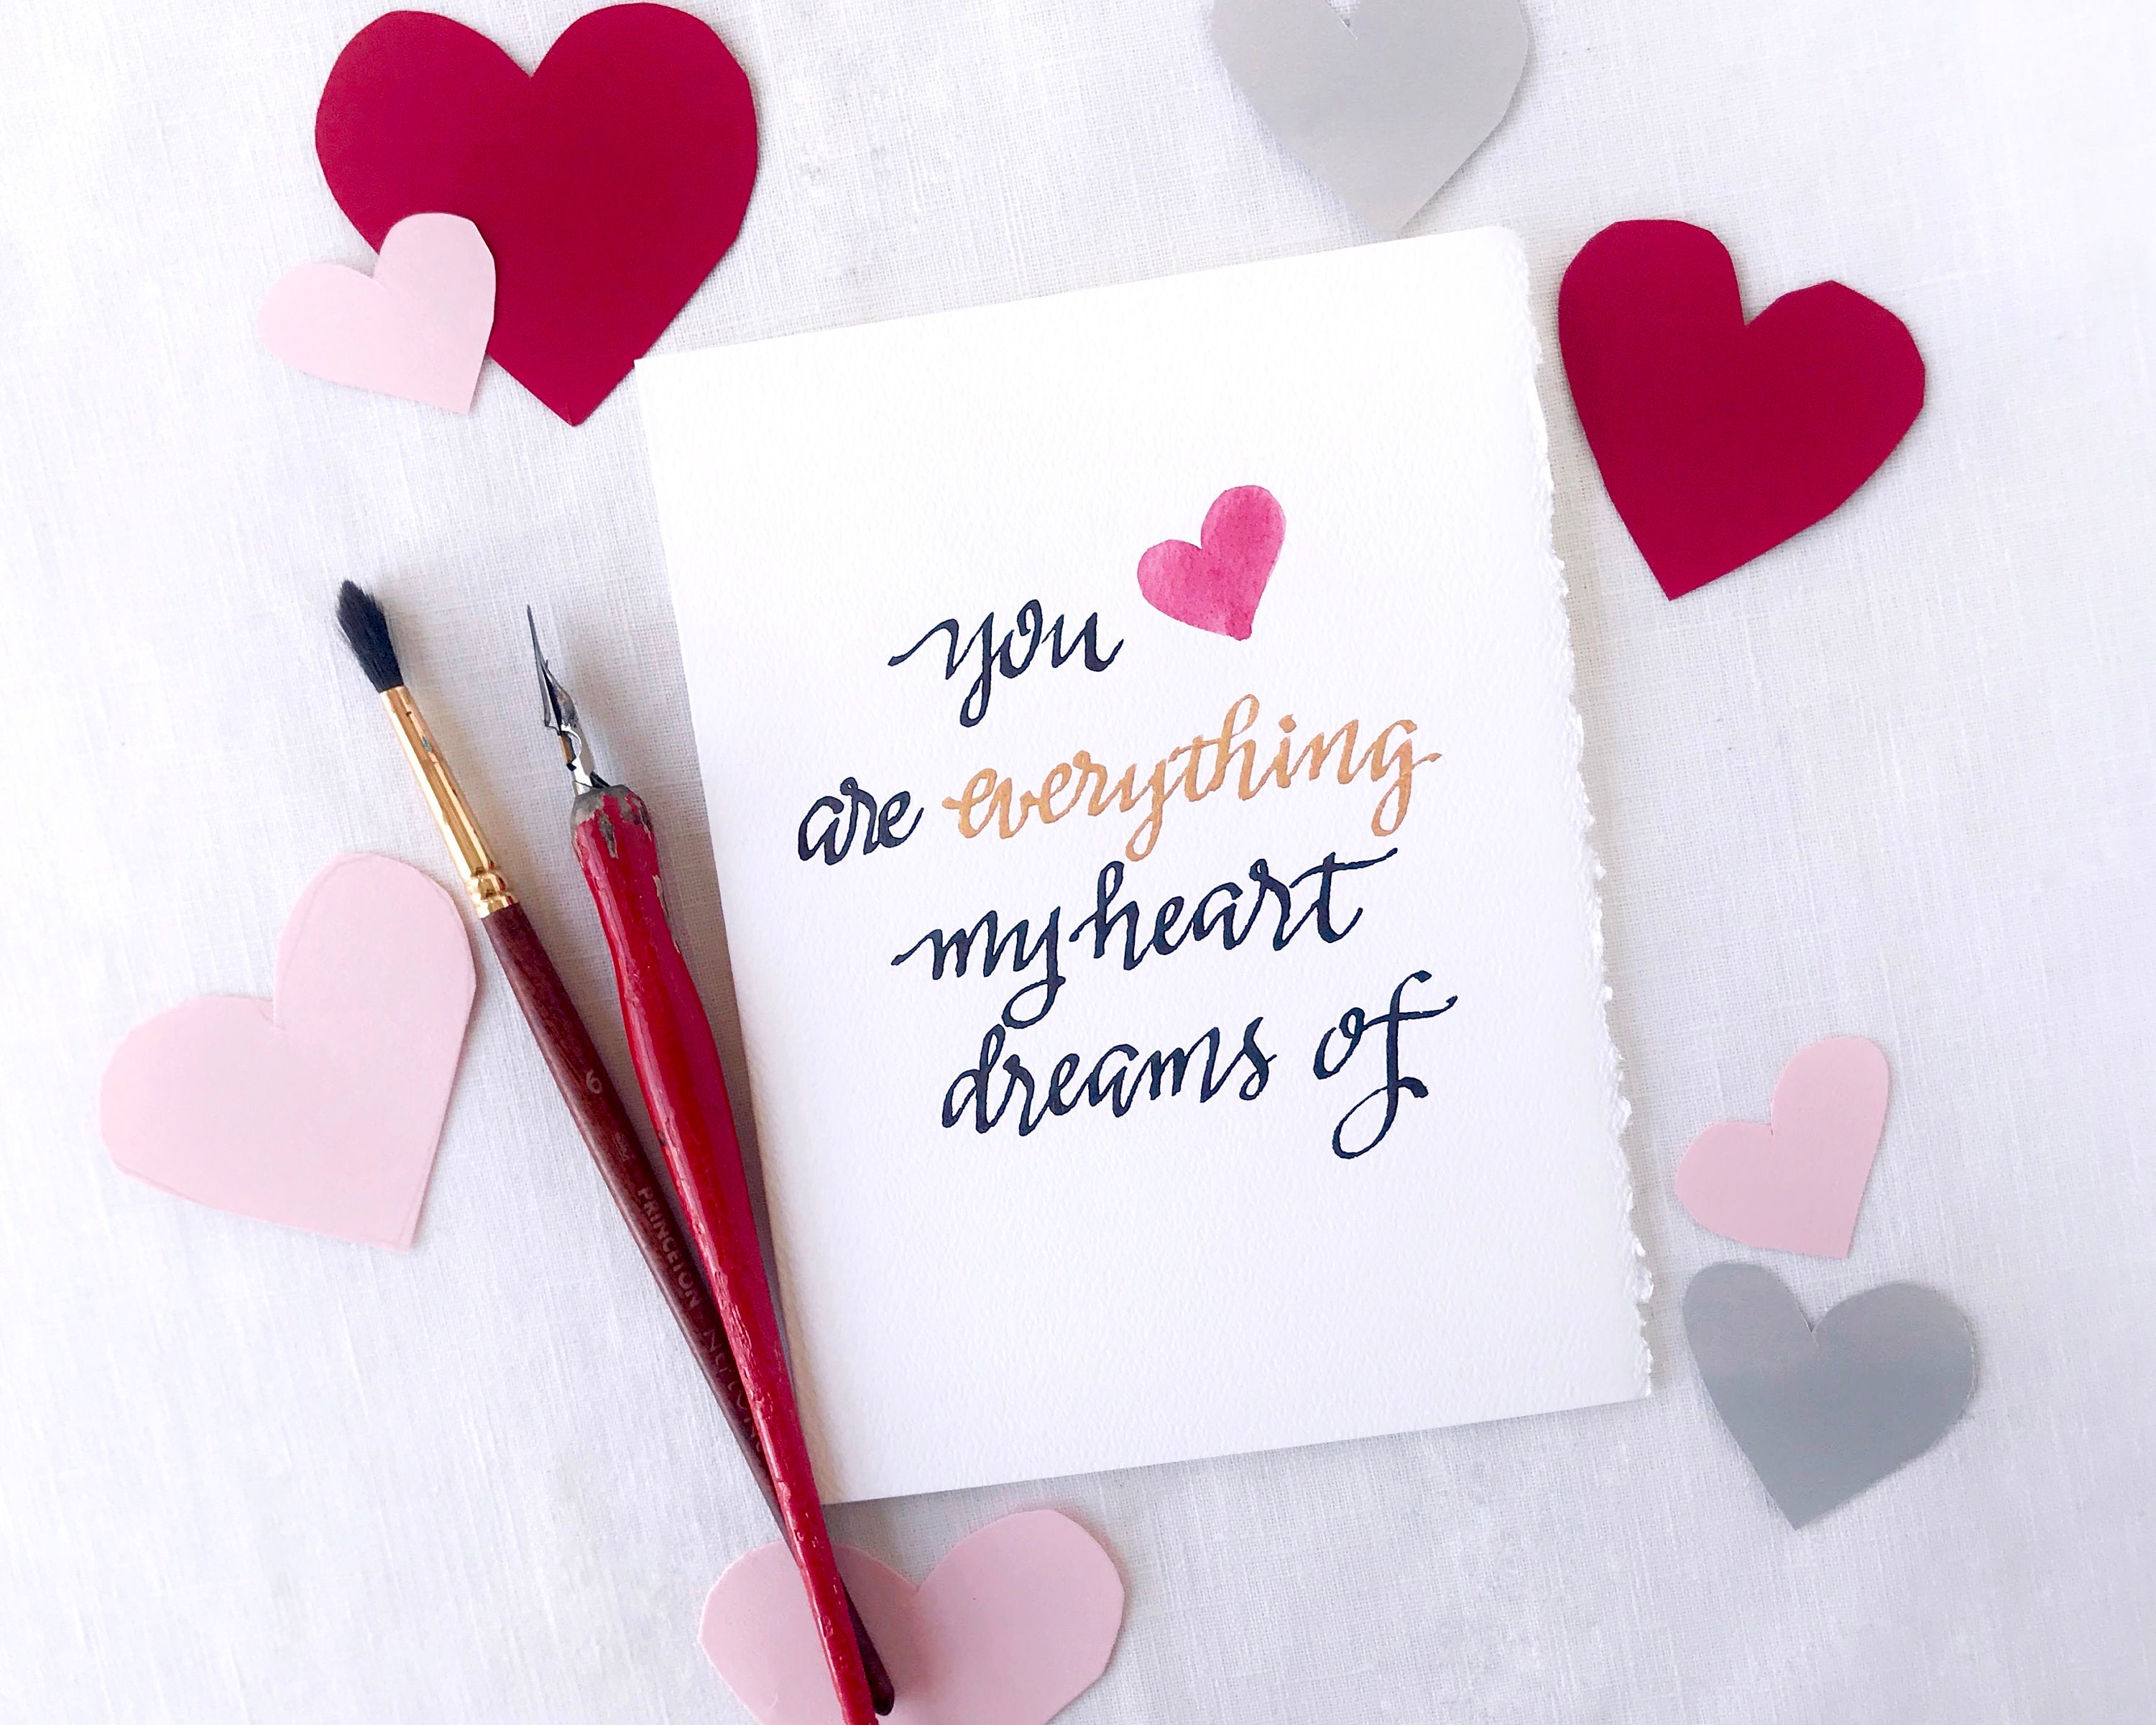 you
are everything
my heart
dreams of
6
PRINCETON